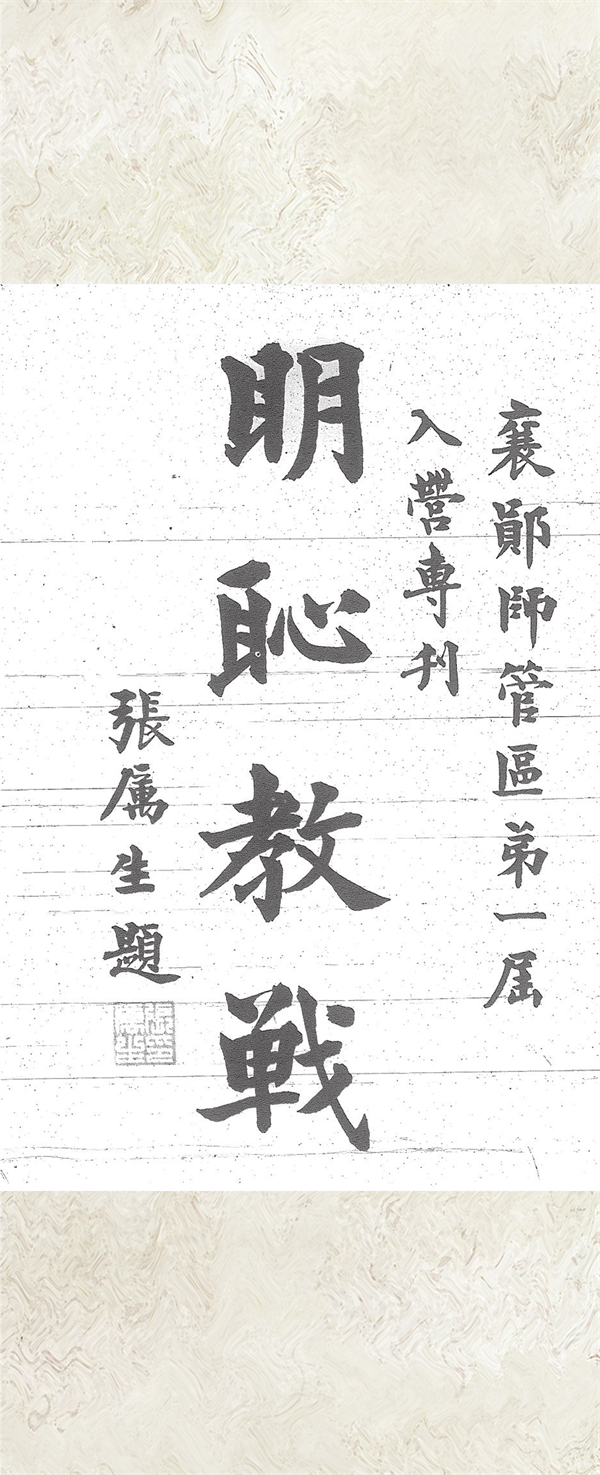 襄鄖師管區第一屆
入營專刊
明恥教戰
張厲生題